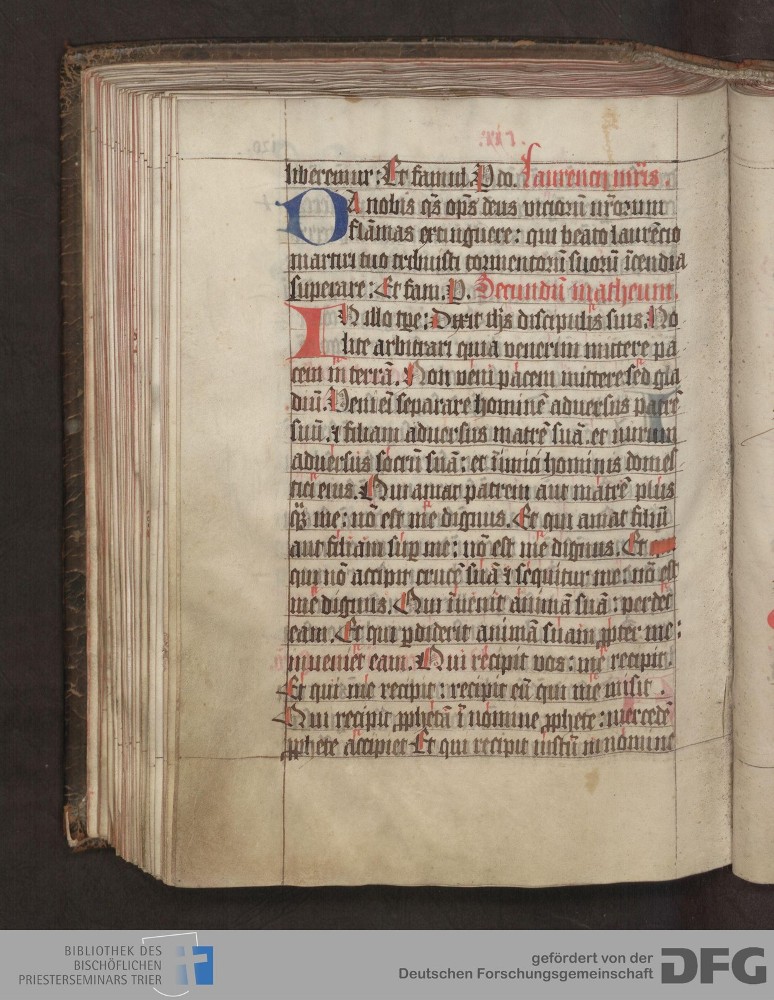 .xxi.
liberemur: Et famul. P do. Laurencij mr̄is.
DA nobis q̄s op̄s deus vicioru̅ nr̄orum
flāmas extinguere: qui beato laurēcio
martiri tuo tribuisti tormentoru̅ suoru̅ īcendia
superare: Et fam. P. Secundū matheum.
IN illo tp̄e: Dixit ih̄s discipulis suis. No
lite arbitrari quia venerim mittere pa
cem in terrā. Non veni pacem mittere sed gla
diū. Veni eī separare hominē adversus patrē
suū. ⁊ filiam adversus matrē suā. et nurum
adversus socrū suā: et īimici hominis domes
tici eius. Qui amat patrem aut matrē plus
q̄ me: nō est me dignus. Et qui amat filiū
aut filiam sup me: nō est me dignus. Et
qui nō accipit crucē suā ⁊ sequitur me: nō est
me dignus. Qui īuenit animā suā: perdet
eam. Et qui ꝑdiderit animā suam ꝓpter me:
inueniet eam. Qui recipit vos: me recipit.
Et qui me recipit: recipit eū qui me misit.
Qui recipit ꝓphetā ī nomine ꝓphete: mercedē
ꝓphete accipiet Et qui recipit iustū in nomine
BIBLIOTHEK DES
BISCHÖFLICHEN
PRIESTERSEMINARS TRIER
gefördert von der
Deutschen Forschungsgemeinschaft DFG